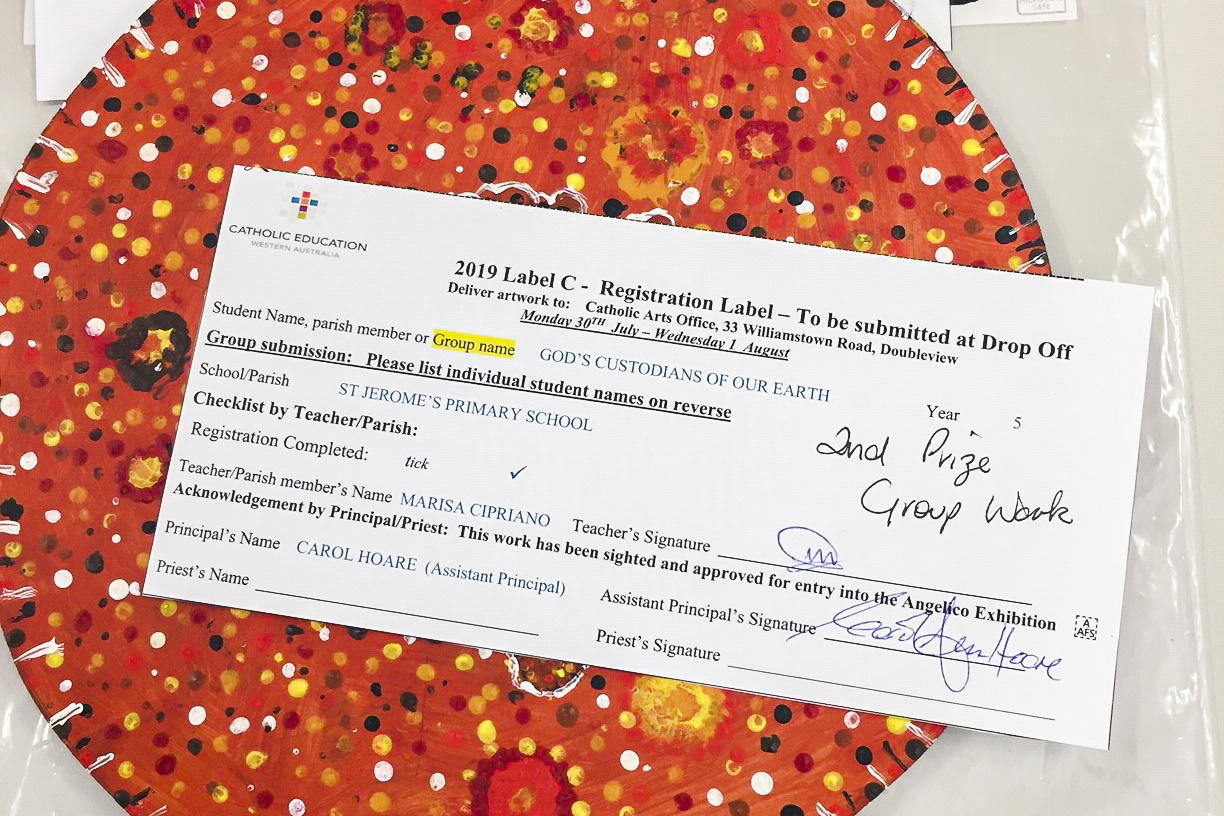 SAFE
CATHOLIC EDUCATION
WESTERN AUSTRALIA
2019 Label C - Registration Label – To be submitted at Drop Off
Deliver artwork to: Catholic Arts Office, 33 Williamstown Road, Doubleview
Monday 30TH July – Wednesday 1 August
Student Name, parish member or Group name GOD'S CUSTODIANS OF OUR EARTH
Group submission: Please list individual student names on reverse
School/Parish ST JEROME'S PRIMARY SCHOOL Year 5
2nd Prize
Group Work
Checklist by Teacher/Parish:
Registration Completed: tick ✓
Teacher/Parish member's Name MARISA CIPRIANO Teacher's Signature
Acknowledgement by Principal/Priest: This work has been sighted and approved for entry into the Angelico Exhibition
Principal's Name CAROL HOARE (Assistant Principal) Assistant Principal's Signature
Priest's Name Priest's Signature
A
AFS